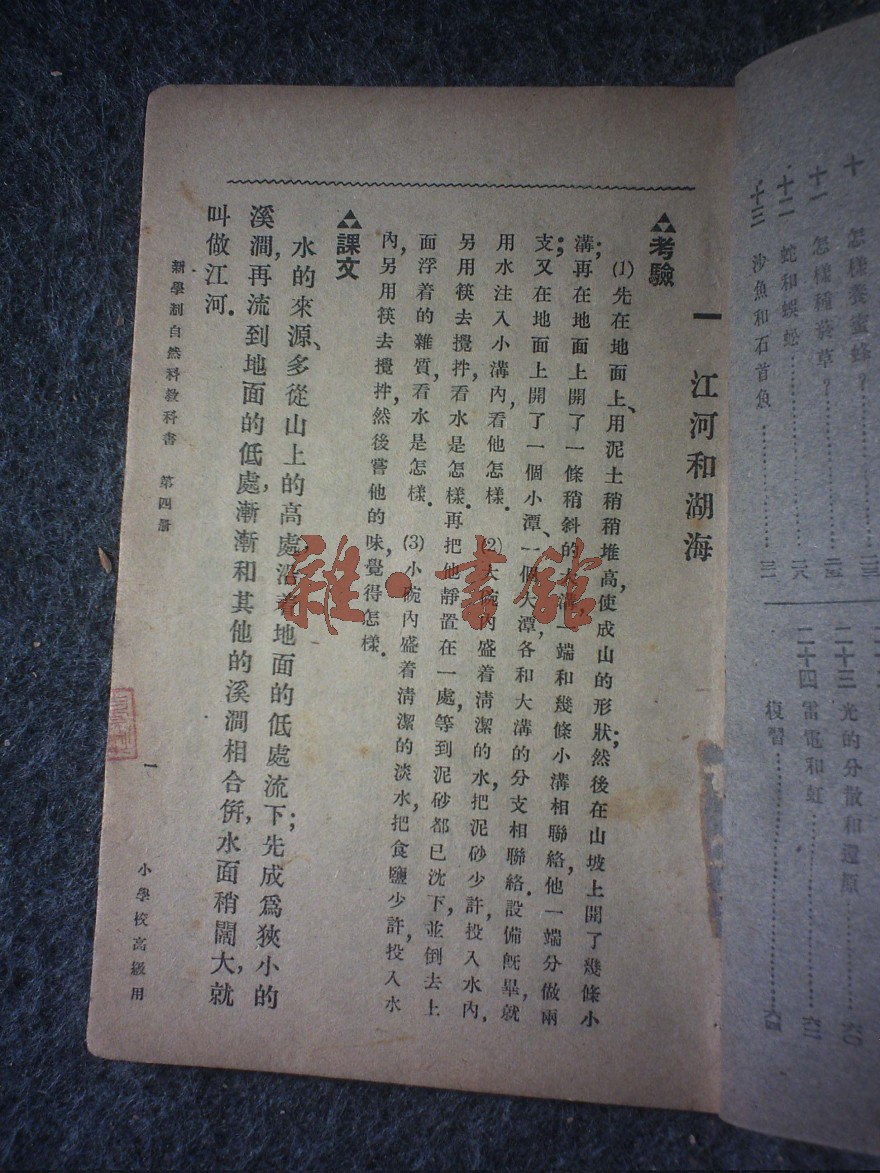 一　江河和湖海
考驗
(1)先在地面上、用泥土稍稍堆高，使成山的形狀；然後在山坡上開了幾條小
溝；再在地面上開了一條稍斜的大溝，一端和幾條小溝相聯絡，他一端分做兩
支；又在地面上開了一個小潭、一個大潭，各和大溝的分支相聯絡．設備旣畢，就
用水注入小溝內，看他怎樣．　(2)大碗內盛着淸潔的水，把泥砂少許，投入水內，
另用筷去攪拌，看水是怎樣．再把他靜置在一處，等到泥砂都已沈下，並倒去上
面浮着的雜質，看水是怎樣．　(3)小碗內盛着淸潔的淡水，把食鹽少許，投入水
內，另用筷去攪拌，然後嘗他的味，覺得怎樣．
課文
水的來源、多從山上的高處，沿着地面的低處流下；先成爲狹小的
溪澗，再流到地面的低處，漸漸和其他的溪澗相合倂，水面稍闊大，就
叫做江河．
新學制自然科敎科書　第四册
一
小學校高級用
十　怎樣養蜂？
十一　怎樣種菸草？
十二　蛇和蜈蚣
十三　沙魚和石首魚
二十三　光的分散和還原
二十四　雷電和虹
複習
雜·書館